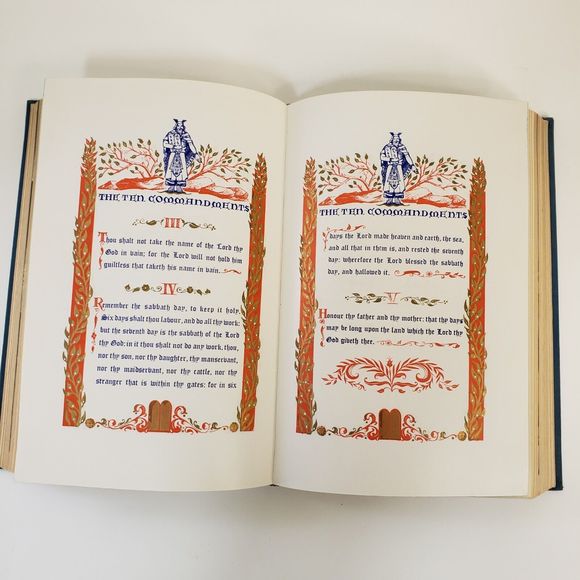 THE TEN COMMANDMENTS
III
Thou shalt not take the name of the Lord thy
God in vain; for the Lord will not hold him
guiltless that taketh his name in vain.
IV
Remember the sabbath day, to keep it holy.
Six days shalt thou labour, and do all thy work:
but the seventh day is the sabbath of the Lord
thy God: in it thou shalt not do any work, thou,
nor thy son, nor thy daughter, thy manservant,
nor thy maidservant, nor thy cattle, nor thy
stranger that is within thy gates: for in six
THE TEN COMMANDMENTS
days the Lord made heaven and earth, the sea,
and all that in them is, and rested the seventh
day: wherefore the Lord blessed the sabbath
day, and hallowed it.
V
Honour thy father and thy mother: that thy days
may be long upon the land which the Lord thy
God giveth thee.